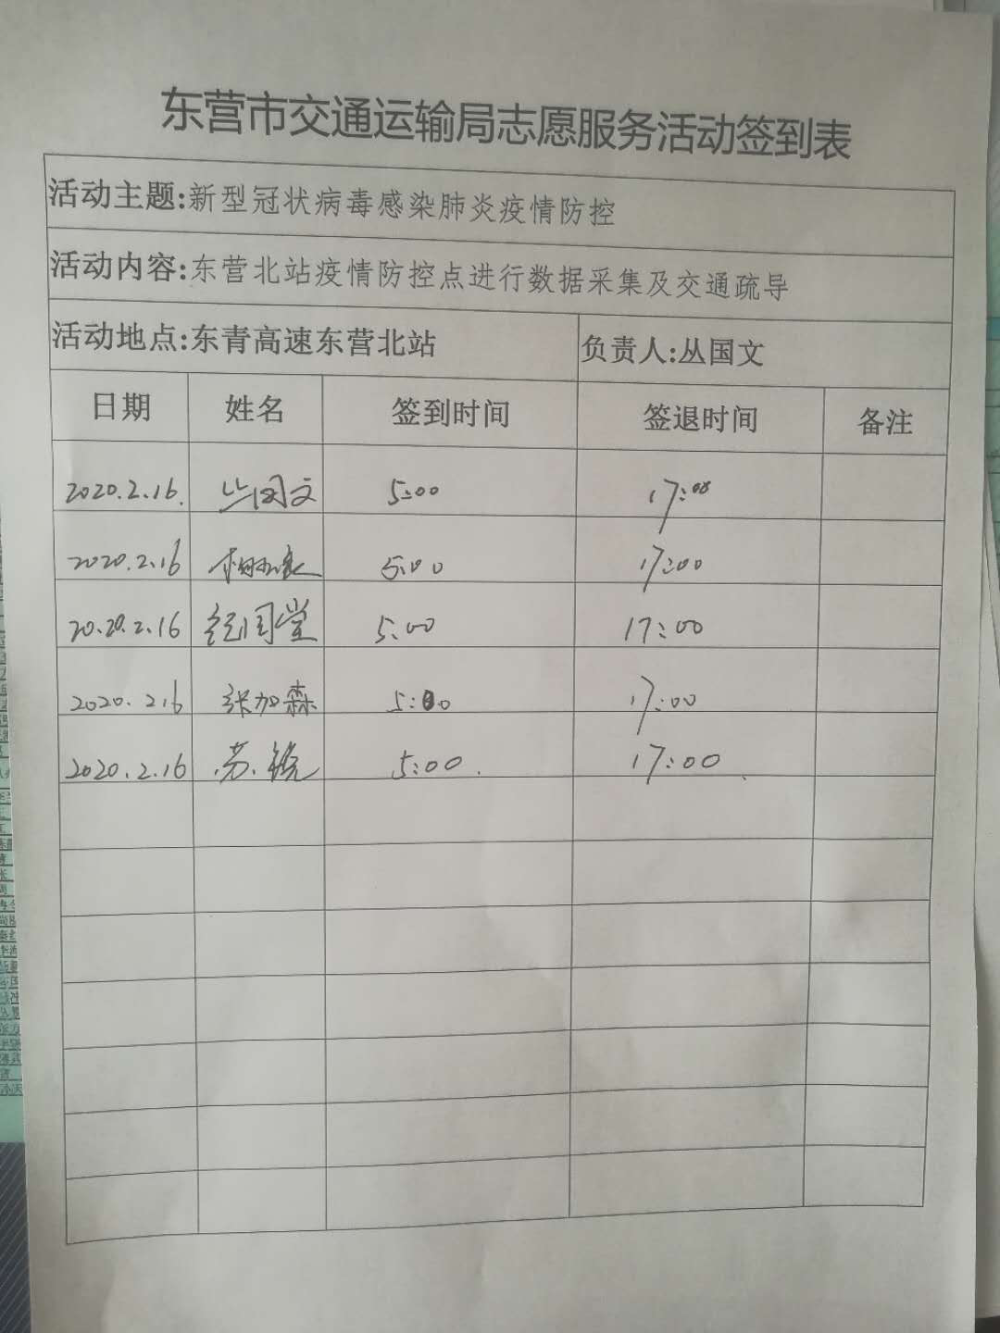 东营市交通运输局志愿服务活动签到表
活动主题:新型冠状病毒感染肺炎疫情防控
活动内容:东营北站疫情防控点进行数据采集及交通疏导
活动地点:东青高速东营北站 负责人:丛国文
日期 姓名 签到时间 签退时间 备注
2020.2.16. 丛国文 5:00 17:00
2020.2.16 5:00 17:00
2020.2.16 纪国堂 5:00 17:00
2020.2.16 张加森 5:00 17:00
2020.2.16 苏锐 5:00 17:00